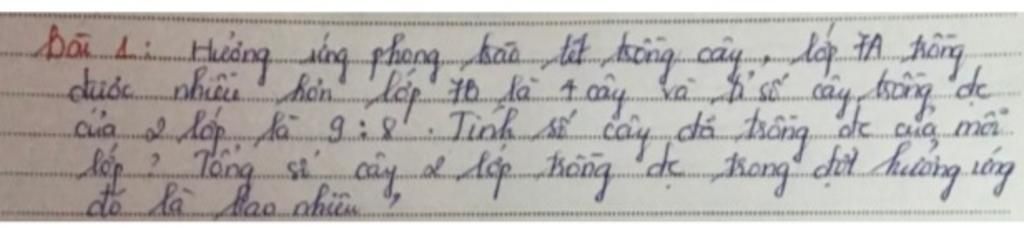 Bài 1: Hưởng ứng phong trào tết trồng cây, lớp 7A trồng
được nhiều hơn lớp 7B là 4 cây và tỉ số cây trồng đc
của 2 lớp là 9:8. Tính số cây đã trồng đc của mỗi
lớp? Tổng số cây 2 lớp trồng đc trong đợt hưởng ứng
đó là bao nhiêu,